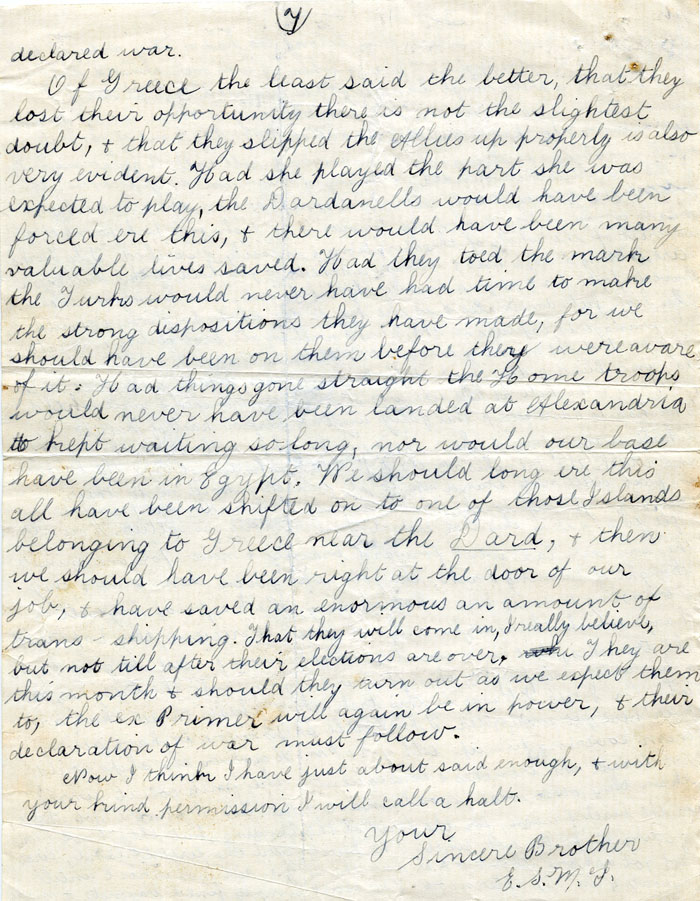 (7)
declared war.
Of Greece the least said the better, that they
lost their opportunity there is not the slightest
doubt, + that they slipped the Allies up properly is also
very evident. Had she played the part she was
expected to play, the Dardanells would have been
forced ere this, + there would have been many
valuable lives saved. Had they toed the mark
the Turks would never have had time to make
the strong dispositions they have made, for we
should have been on them before they were aware
of it: Had things gone straight the Home troops
would never have been landed at Alexandria
to kept waiting so long, nor would our base
have been in Egypt. We should long ere this
all have been shifted on to one of those Islands
belonging to Greece near the Dard, + then
we should have been right at the door of our
job, + have saved an enormous an amount of
trans-shipping. That they will come in, I really believe,
but not till after their elections are over. They are
this month + should they turn out as we expect them
to, the ex Primer will again be in power, + their
declaration of war must follow.
Now I think I have just about said enough, + with
your kind permission I will call a halt.
Your
Sincere Brother
E. S. M. I.